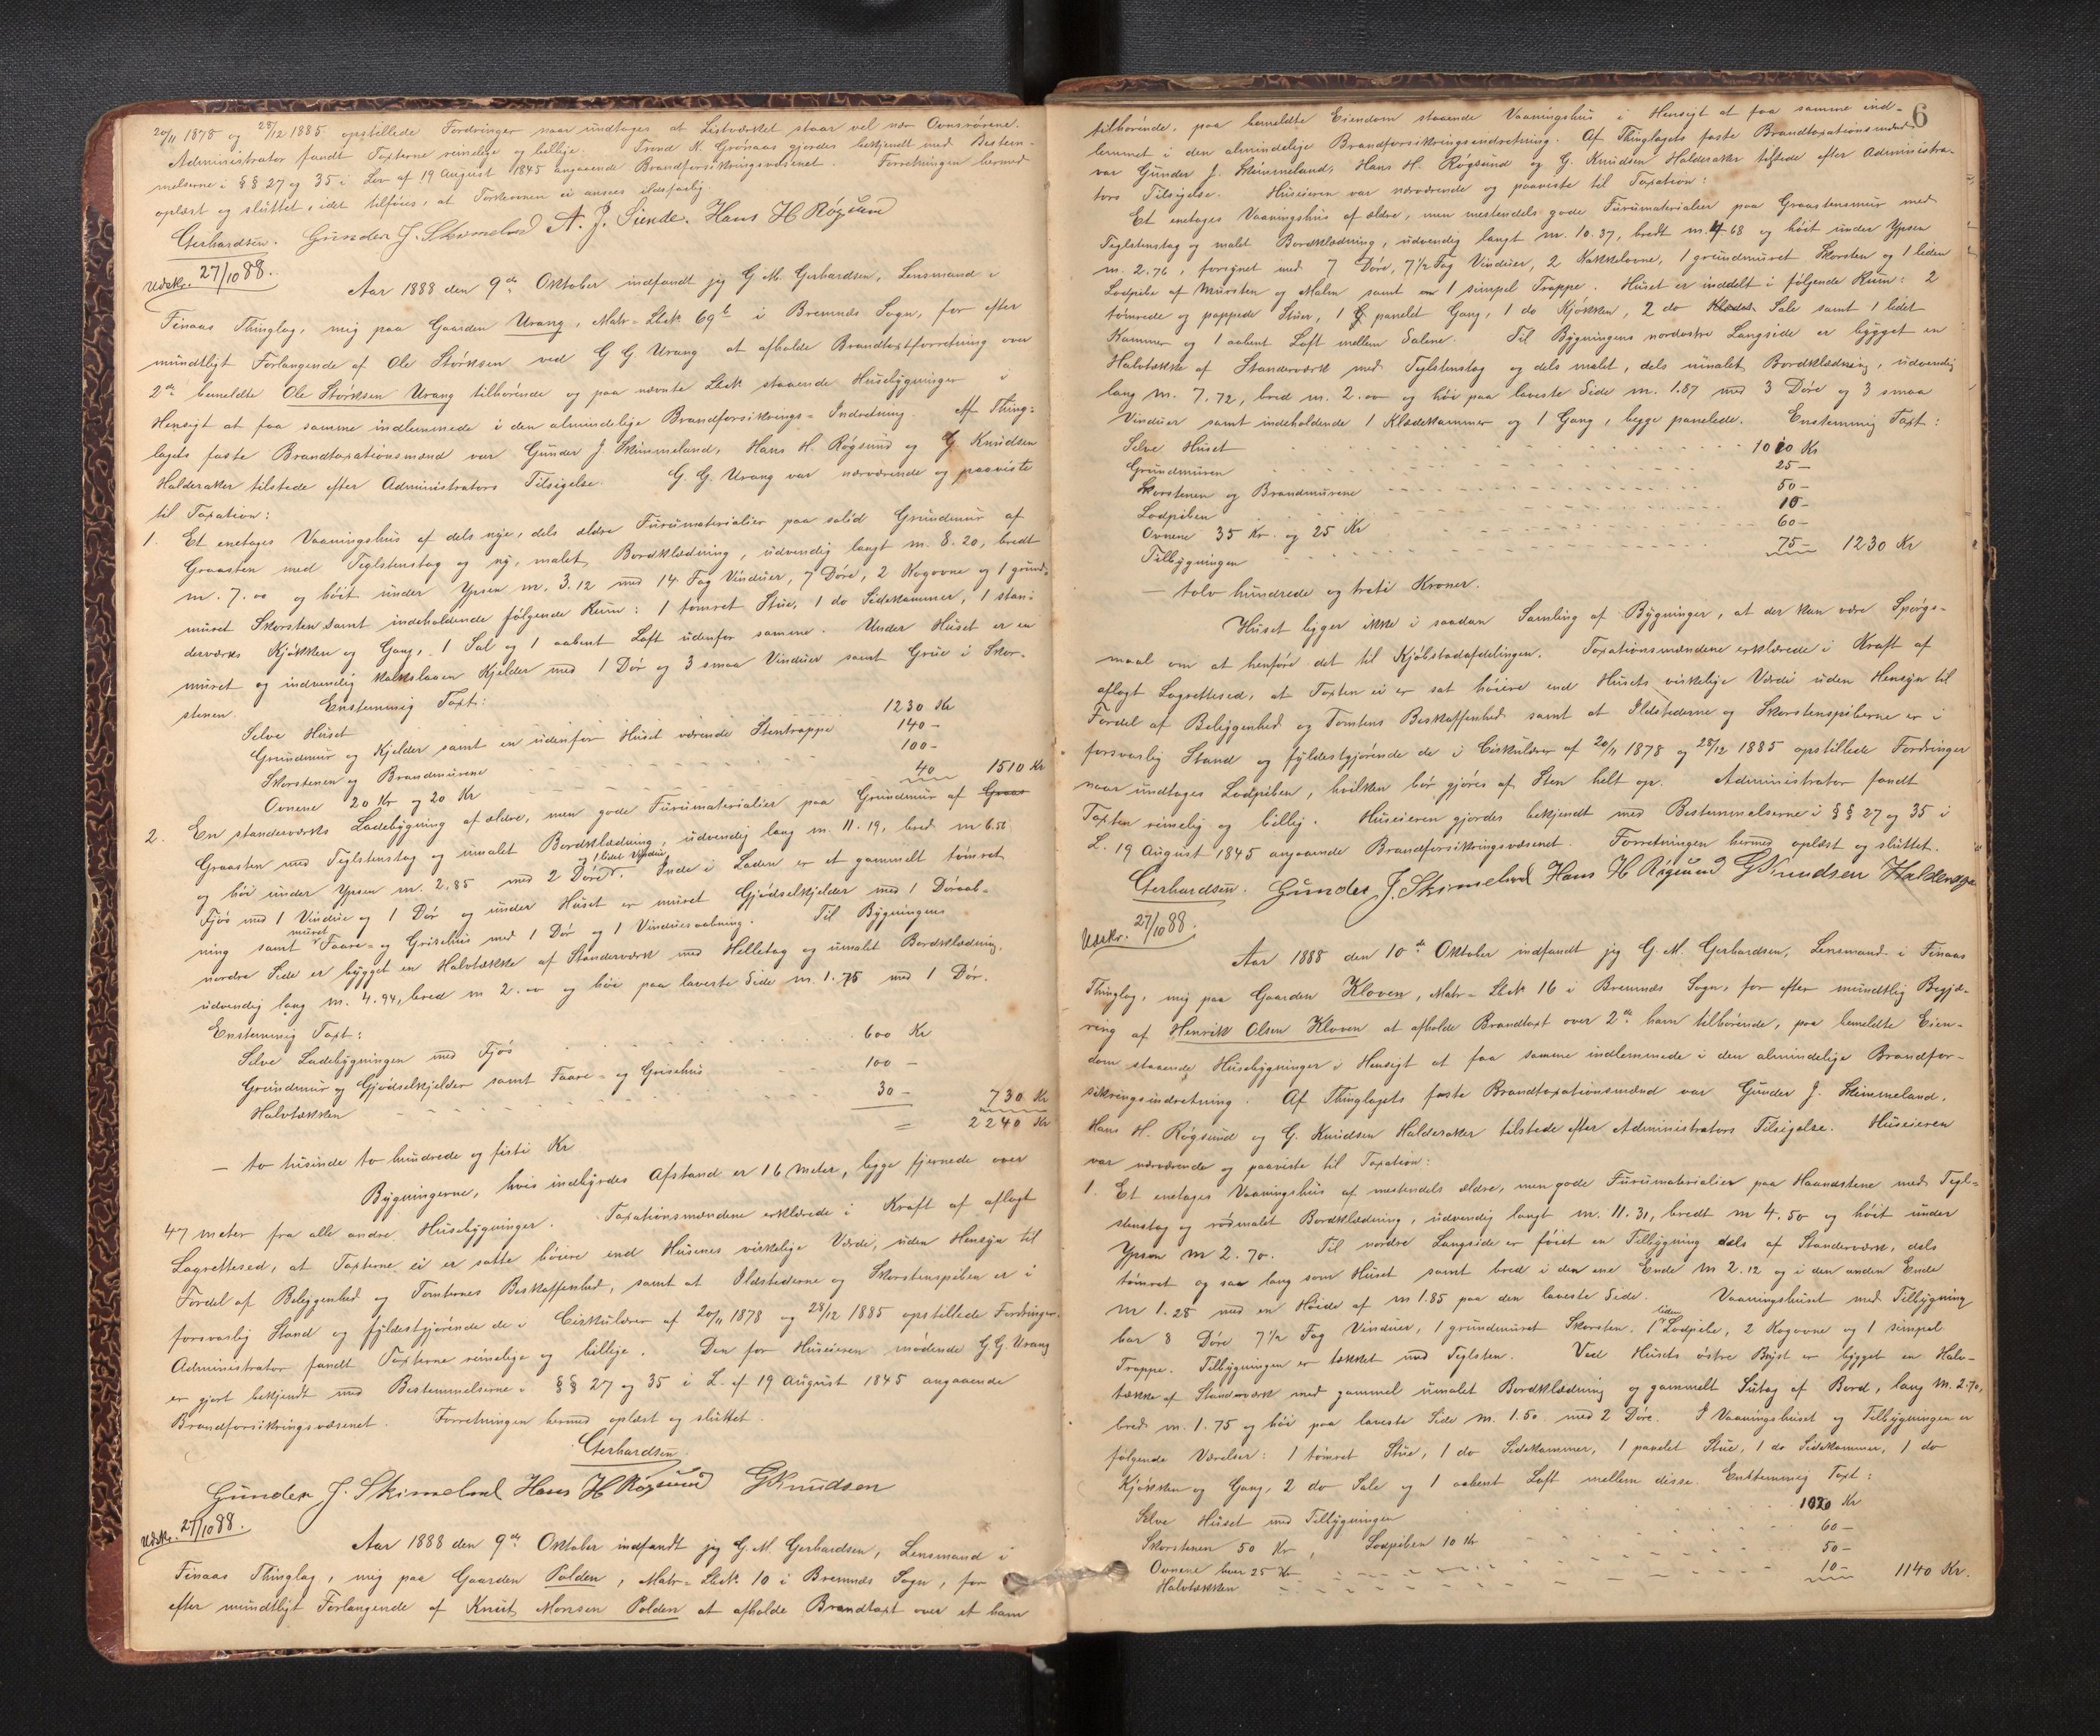 20/11 1878 og 28/12 1885 opstillede Fordringer naar undtages at Listværket staar vel nær Ovnsrørene.
Administrator fandt Taxterne reimelige og billige. Trond N. Grønaas gjordes bekjendt med Bestem-
melserne i §§ 27 og 35 i Lov af 19 August 1845 angaaende Brandforsikringsvæsenet. Forretningen hermed
oplæst og sluttet, idet tilføies, at Torkeovnen ei ansees ildsfarlig
Gerhardsen. Gunder J. Skimeland A. J. Siende. Hans H Røgsund
Udskr. 27/10 88.
Aar 1888 den 9de Oktober indfandt jeg G. M. Gerhardsen, Lensmand i
Finaas Thinglag, mig paa Gaarden Urang, Matr-Løb.№ 69b i Bremnæs Sogn, for efter
mundtligt Forlangende af Ole Størksen ved G G Urang at afholde Brandtaxtforretning over
2de bemeldte Ole Størksen Urang tilhørende og paa nævnte Løb№ staaende Husebygninger i
Hensigt at faa samme indlemmede i den almindelige Brandforsikrings-Indretning. Af Thing-
lagets faste Brandtaxationsmænd var Gunder J. Skimmeland, Hans H. Røgsund og G Knudsen
Halderaker tilstede efter Administrators Tilsigelse. G. G. Urang var nærværende og paaviste
til Taxation:
1. Et enetages Vaaningshus af dels nye, dels ældre Furumaterialier paa solid Grundmur af
Graasten med Teglstenstag og ny, malet Bordklædning, udvendig langt m. 8.20, bredt
m. 7.00 og høit under Ypsen m. 3.12 med 14 Fag Vinduer, 7 Døre, 2 Kogovne og 1 grund-
muret Skorsten samt indeholdende følgende Rum: 1 tømret Stue, 1 do Sidekammer, 1 stan-
derværks Kjøkken og Gang, 1 Sal og 1 aabent Loft udenfor samme. Under Huset er en
muret og indvendig kalkslagen Kjelder med 1 Dør og 3 smaa Vinduer samt Grue i Skor-
stenen. Enstemmig Taxt:
Selve Huset 1230 Kr
Grundmur og Kjelder samt en udenfor Huset værende Stentrappe 140 -
Skorstenen og Brandmurene 100 -
Ovnene 20 Kr og 20 Kr 40 1510 Kr
2. En standerværks Ladebygning af ældre, men gode Furumaterialier paa Grundmur af Graas
Graasten med Teglstenstag og umalet Bordklædning, udvendig lang m. 11.19, bred m 6.56
og høi under Ypsen m. 2.85 med 2 Døre og 1 lidet Vindue. Inde i Laden er et gammelt tømret
Fjøs med 1 Vindue og 1 Dør og under Huset er muret Gjødselkjelder med 1 Døraab-
ning samt muret Faare- og Grisehus med 1 Dør og 1 Vinduesaabning. Til Bygningens
nordre Side er bygget en Halvtække af Standerværk med Helletag og umalet Bordklædning,
udvendig lang m. 4.94, bred m 2.00 og høi paa laveste Side m. 1.75 med 1 Dør.
Enstemmig Taxt:
Selve Ladebygningen med Fjøs 600 Kr
Grundmur og Gjødselkjelder samt Faare- og Grisehus 100 -
Halvtækken 30 - 730 Kr
= 2240 Kr
- to tusinde to hundrede og firti Kr
Bygningerne, hvis indbyrdes Afstand er 16 Meter, ligge fjernede over
47 meter fra alle andre Husebygninger. Taxationsmændene erklærede i Kraft af aflagt
Lagrettesed, at Taxterne ei er satte høiere end Husenes virkelige Værdi, uden Hensyn til
Fordel af Beliggenhed og Tomternes Beskaffenhed, samt at Ildstederne og Skorstenspiben er i
forsvarlig Stand og fyldestgjørende de i Cirkulærer af 20/11 1878 og 28/12 1885 opstillede Fordringer.
Administrator fandt Taxterne reimelige og billige. Den for Huseieren mødende G. G. Urang
er gjort bekjendt med Bestemmelserne i §§ 27 og 35 i L. af 19 August 1845 angaaende
Brandforsikringsvæsenet. Forretningen hermed oplæst og sluttet.
Gerhardsen.
Gunder J. Skimeland Hans H Røgsund GKnudsen
Udskr. 27/10 88.
Aar 1888 den 9de Oktober indfandt jeg G. M. Gerhardsen, Lensmand i
Finaas Thinglag, mig paa Gaarden Polden, Matr-Løb.№ 10 i Bremnæs Sogn, for
efter mundtligt Forlangende af Knut Monsen Polden at afholde Brandtaxt over et ham
6
tilhørende, paa bemeldte Eiendom staaende Vaaningshus i Hensigt at faa samme ind-
lemmet i den almindelige Brandforsikringsindretning. Af Thinglagets faste Brandtaxationsmænd
var Gunder J. Skimmeland, Hans H. Røgsund og G. Knudsen Halderaker tilstede efter Administra-
tors Tilsigelse. Huseieren var nærværende og paaviste til Taxation:
Et enetages Vaaningshus af ældre, men mestendels gode Furumaterialier paa Graastensmur med
Teglstenstag og malet Bordklædning, udvendig langt m. 10.37, bredt m. 4.68 og høit under Ypsen
m. 2.76, forsynet med 7 Døre, 7½ Fag Vinduer, 2 Kakkelovne, 1 grundmuret Skorsten og 1 liden
Lodpibe af Mursten og Malm samt en 1 simpel Trappe. Huset er inddelt i følgende Rum: 2
tømrede og pappede Stuer, 1 panelet Gang, 1 do Kjøkken, 2 do Sale samt 1 lidet
Kammer og 1 aabent Loft mellem Salene. Til Bygningens nordøstre Langside er bygget en
Halvtække af Standerværk med Teglstenstag og dels malet, dels umalet Bordklædning, udvendig
lang m. 7.72, bred m. 2.00 og høi paa laveste Side m. 1.87 med 3 Døre og 3 smaa
Vinduer samt indeholdende 1 Klædekammer og 1 Gang, begge panelede. Enstemmig Taxt:
Selve Huset 1010 Kr
Grundmuren 25 -
Skorstenen og Brandmurene 50 -
Lodpiben 10 -
Ovnene 35 Kr. og 25 Kr 60 -
Tilbygningen 75 - 1230 Kr
- tolv hundrede og treti Kroner.
Huset ligger ikke i saadan Samling af Bygninger, at der kan være Spørgs-
maal om at henføre det til Kjøbstadafdelingen. Taxationsmændene erklærede i Kraft af
aflagt Lagrettesed, at Taxten ei er sat høiere end Husets virkelige Værdi uden Hensyn til
Fordel af Beliggenhed og Tomtens Beskaffenhed samt at Ildstederne og Skorstenspiberne er i
forsvarlig Stand og fyldestgjørende de i Cirkulærer af 20/11 1878 og 28/12 1885 opstillede Fordringer
naar undtages Lodpiben, hvilken bør gjøres af Sten helt op. Administrator fandt
Taxten reimelig og billig. Huseieren gjordes bekjendt med Bestemmelserne i §§ 27 og 35 i
L. 19 August 1845 angaaende Brandforsikringsvæsenet. Forretningen hermed oplæst og sluttet.
Gerhardsen. Gunder J. Skimeland Hans H Røgsund GKnudsen
Udskr. 27/10 88.
Aar 1888 den 10de Oktober indfandt jeg G. M. Gerhardsen, Lensmand i Finaas
Thinglag, mig paa Gaarden Kloven, Matr-Løb№ 16 i Bremnæs Sogn, for efter mundtlig Begjæ-
ring af Henrik Olsen Kloven at afholde Brandtaxt over 2de ham tilhørende, paa bemeldte Eien-
dom staaende Husebygninger i Hensigt at faa samme indlemmede i den almindelige Brandfor-
sikringsindretning. Af Thinglagets faste Brandtaxationsmænd var Gunder J. Skimmeland,
Hans H. Røgsund og G. Knudsen Halderaker tilstede efter Administrators Tilsigelse. Huseieren
var nærværende og paaviste til Taxation:
1. Et enetages Vaaningshus af mestendels ældre, men gode Furumaterialier paa Haandstene med Tegl-
stenstag og rødmalet Bordklædning, udvendig langt m. 11.31, bredt m 4.50 og høit under
Ypsen m 2.70. Til nordre Langside er føiet en Tilbygning dels af Standerværk, dels
tømret og saa lang som Huset samt bred i den ene Ende m 2.12 og i den anden Ende
m 1.28 med en Høide af m 1.85 paa den laveste Side. Vaaningshuset med Tilbygning
har 8 Døre 7½ Fag Vinduer, 1 grundmuret Skorsten. 1 liden Lodpibe, 2 Kogovne og 1 simpel
Trappe. Tilbygningen er tækket med Teglsten. Ved Husets østre Bryst er bygget en Halv-
tække af Standerværk med gammel umalet Bordklædning og gammelt Sutag af Bord, lang m. 2.70,
bred m. 1.75 og høi paa laveste Side m. 1.50 med 2 Døre. I Vaaningshuset og Tilbygningen er
følgende Værelser: 1 tømret Stue, 1 do Sidekammer, 1 panelet Stue, 1 do Sidekammer, 1 do
Kjøkken og Gang, 2 do Sale og 1 aabent Loft mellem disse. Enstemmig Taxt:
Selve Huset med Tilbygningen 1020 Kr
Skorstenen 50 Kr, Lodpiben 10 Kr 60 -
Ovnene hver 25 Kr 50 -
Halvtækken 10 - 1140 Kr.